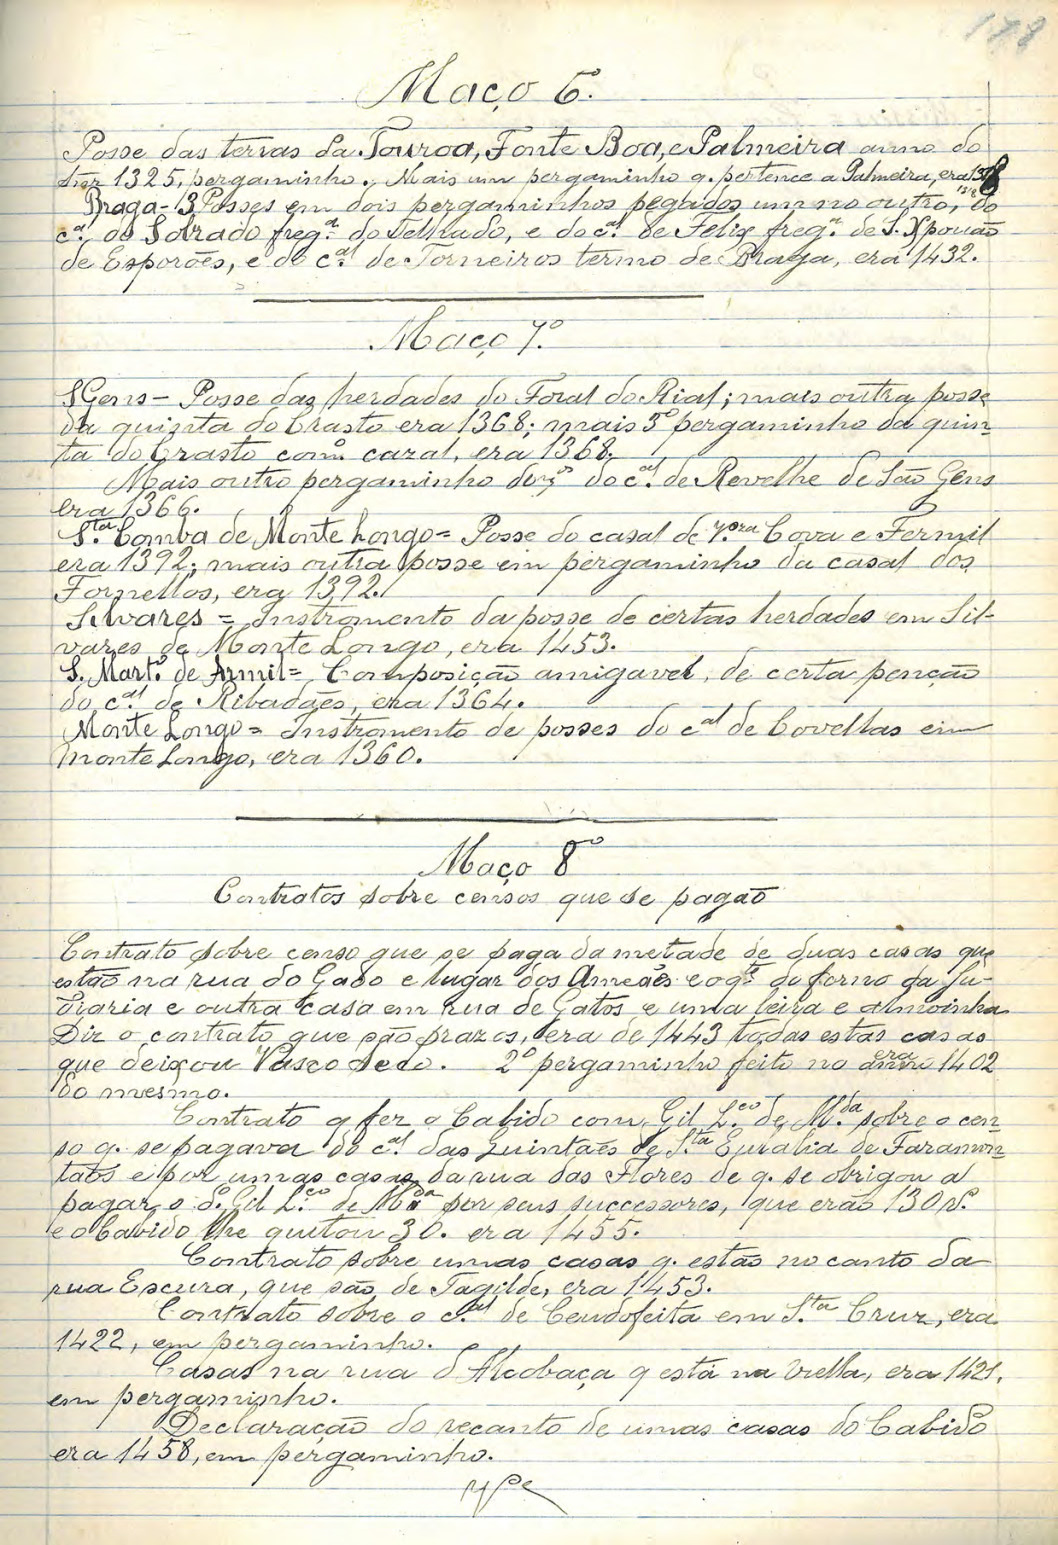 178
Maço 6º.
Posse das terras da Touroa, Fonte Boa, e Palmeira anno do
1325, pergaminho., Mais um pergaminho q. pertence a Palmeira, era
Braga - 3 Posses em dois pergaminhos pegados um no outro, do
c.al do Sobrado freg.ª do Telhado, e do c.al de Felix freg.ª de S. Xpovão
de Esporões, e do c.al de Torneiros termo de Braga, era 1432.
Maço 7º.
S Gens - Posse das herdades do Foral do Rial; mais outra posse
da quinta do Crasto era 1368; mais 3º pergaminho da quin-
ta do Crasto com o cazal, era 1368.
Mais outro pergaminho do c.al de Revelhe de São Gens
era 1366.
S.ta Comba de Monte Longo = Posse do casal de Cova e Fermil
era 1392; mais outra posse em pergaminho da casal dos
Fornellos, era 1392.
Silvares = Instromento da posse de certas herdades em Sil-
vares de Monte Longo, era 1453.
S. Mart.º de Armil = Composição amigavel, de certa penção
do c.al de Ribadães, era 1364.
Monte Longo = Instromento de posses do c.al de Covellas em
Monte Longo, era 1360.
Maço 8º
Contratos sobre censos que se pagão
Contrato sobre censo que se paga da metade de duas casas que
estão na rua do Gado e lugar dos Ameães e o q.al do forno da Ju-
diaria e outra casa em rua de Gatos e uma leira e almoinha
Diz o contrato que são prazos, era de 1443 todas estas casas
que deixou Vasco. 2º pergaminho feito no era anno 1402
do mesmo.
Contrato q fez o Cabido com Gil L.ço de M.da sobre o cen-
so q. se pagava do c.al das Quintães de S.ta Eulalia de Faramon-
tãos e por umas casas da rua das Flores de q. se obrigou a
pagar o S.r Gil L.ço de M.da por seus successores, que erão 130 r.s
e o Cabido lhe quitou 30. era 1455.
Contrato sobre umas casas q. estão no canto da
rua Escura, que são de Tagilde, era 1453.
Contrato sobre o c.al de Cendofeita em S.ta Cruz, era
1422, em pergaminho.
Casas na rua d'Alcobaça q está na viella, era 1421,
em pergaminho.
Declaração do recanto de umas casas do Cabido
era 1458, em pergaminho.